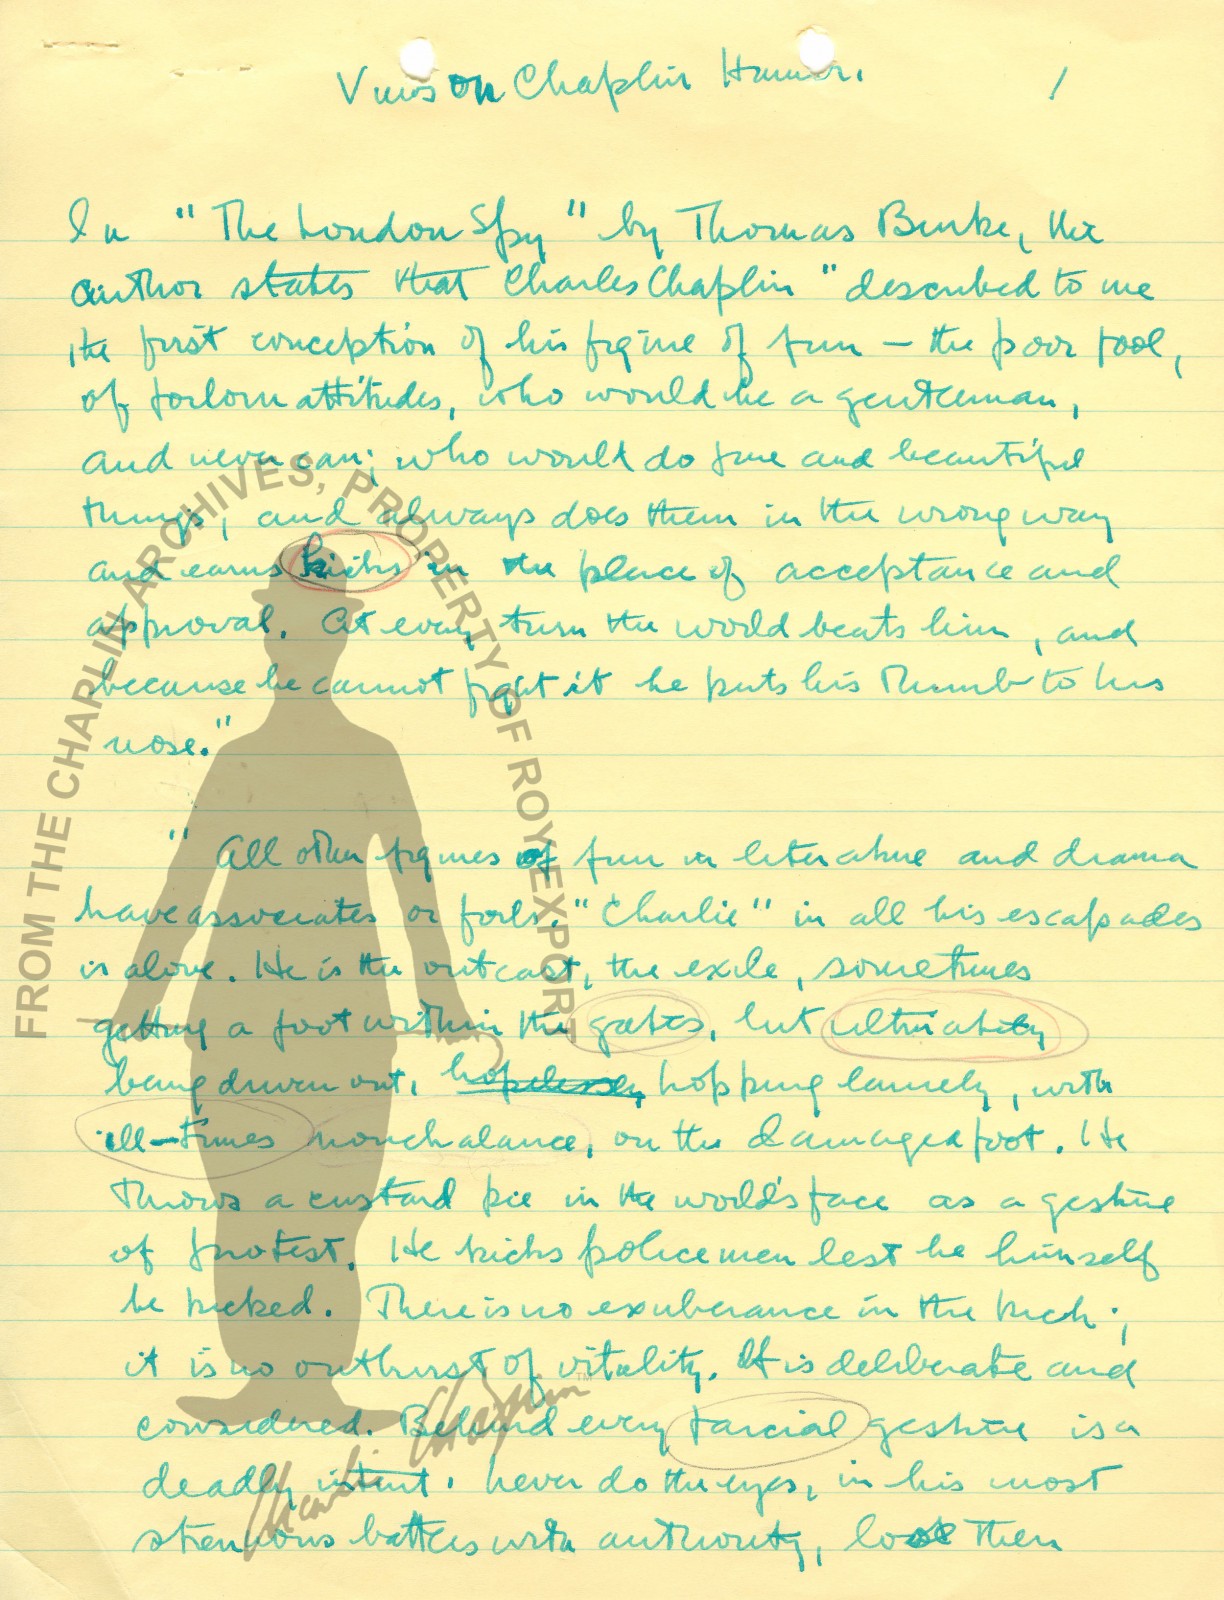 Views on Chaplin Humor. 1
In "The London Spy" by Thomas Burke, the
author states that Charles Chaplin "described to me
the first conception of his figure of fun — the poor fool,
of forlorn attitudes, who would be a gentleman,
and never can; who would do fine and beautiful
things, and always does them in the wrong way
and earns kicks in the place of acceptance and
approval. At every turn the world beats him, and
because he cannot fight it he puts his thumb to his
nose."
"All other figures of fun in literature and drama
have associates or foils. "Charlie" in all his escapades
is alone. He is the outcast, the exile, sometimes
getting a foot within the gates, but ultimately
being driven out, hopelessly hopping lamely, with
ill-times nonchalance, on the damaged foot. He
throws a custard pie in the world's face as a gesture
of protest. He kicks policemen lest he himself
be kicked. There is no exuberance in the kick;
it is no outburst of vitality. It is deliberate and
considered. Behind every farcial gesture is a
deadly intent. Never do the eyes, in his most
strenuous battles with authority, lose then
FROM THE CHAPLIN ARCHIVES, PROPERTY OF ROY EXPORT
Charlie Chaplin™